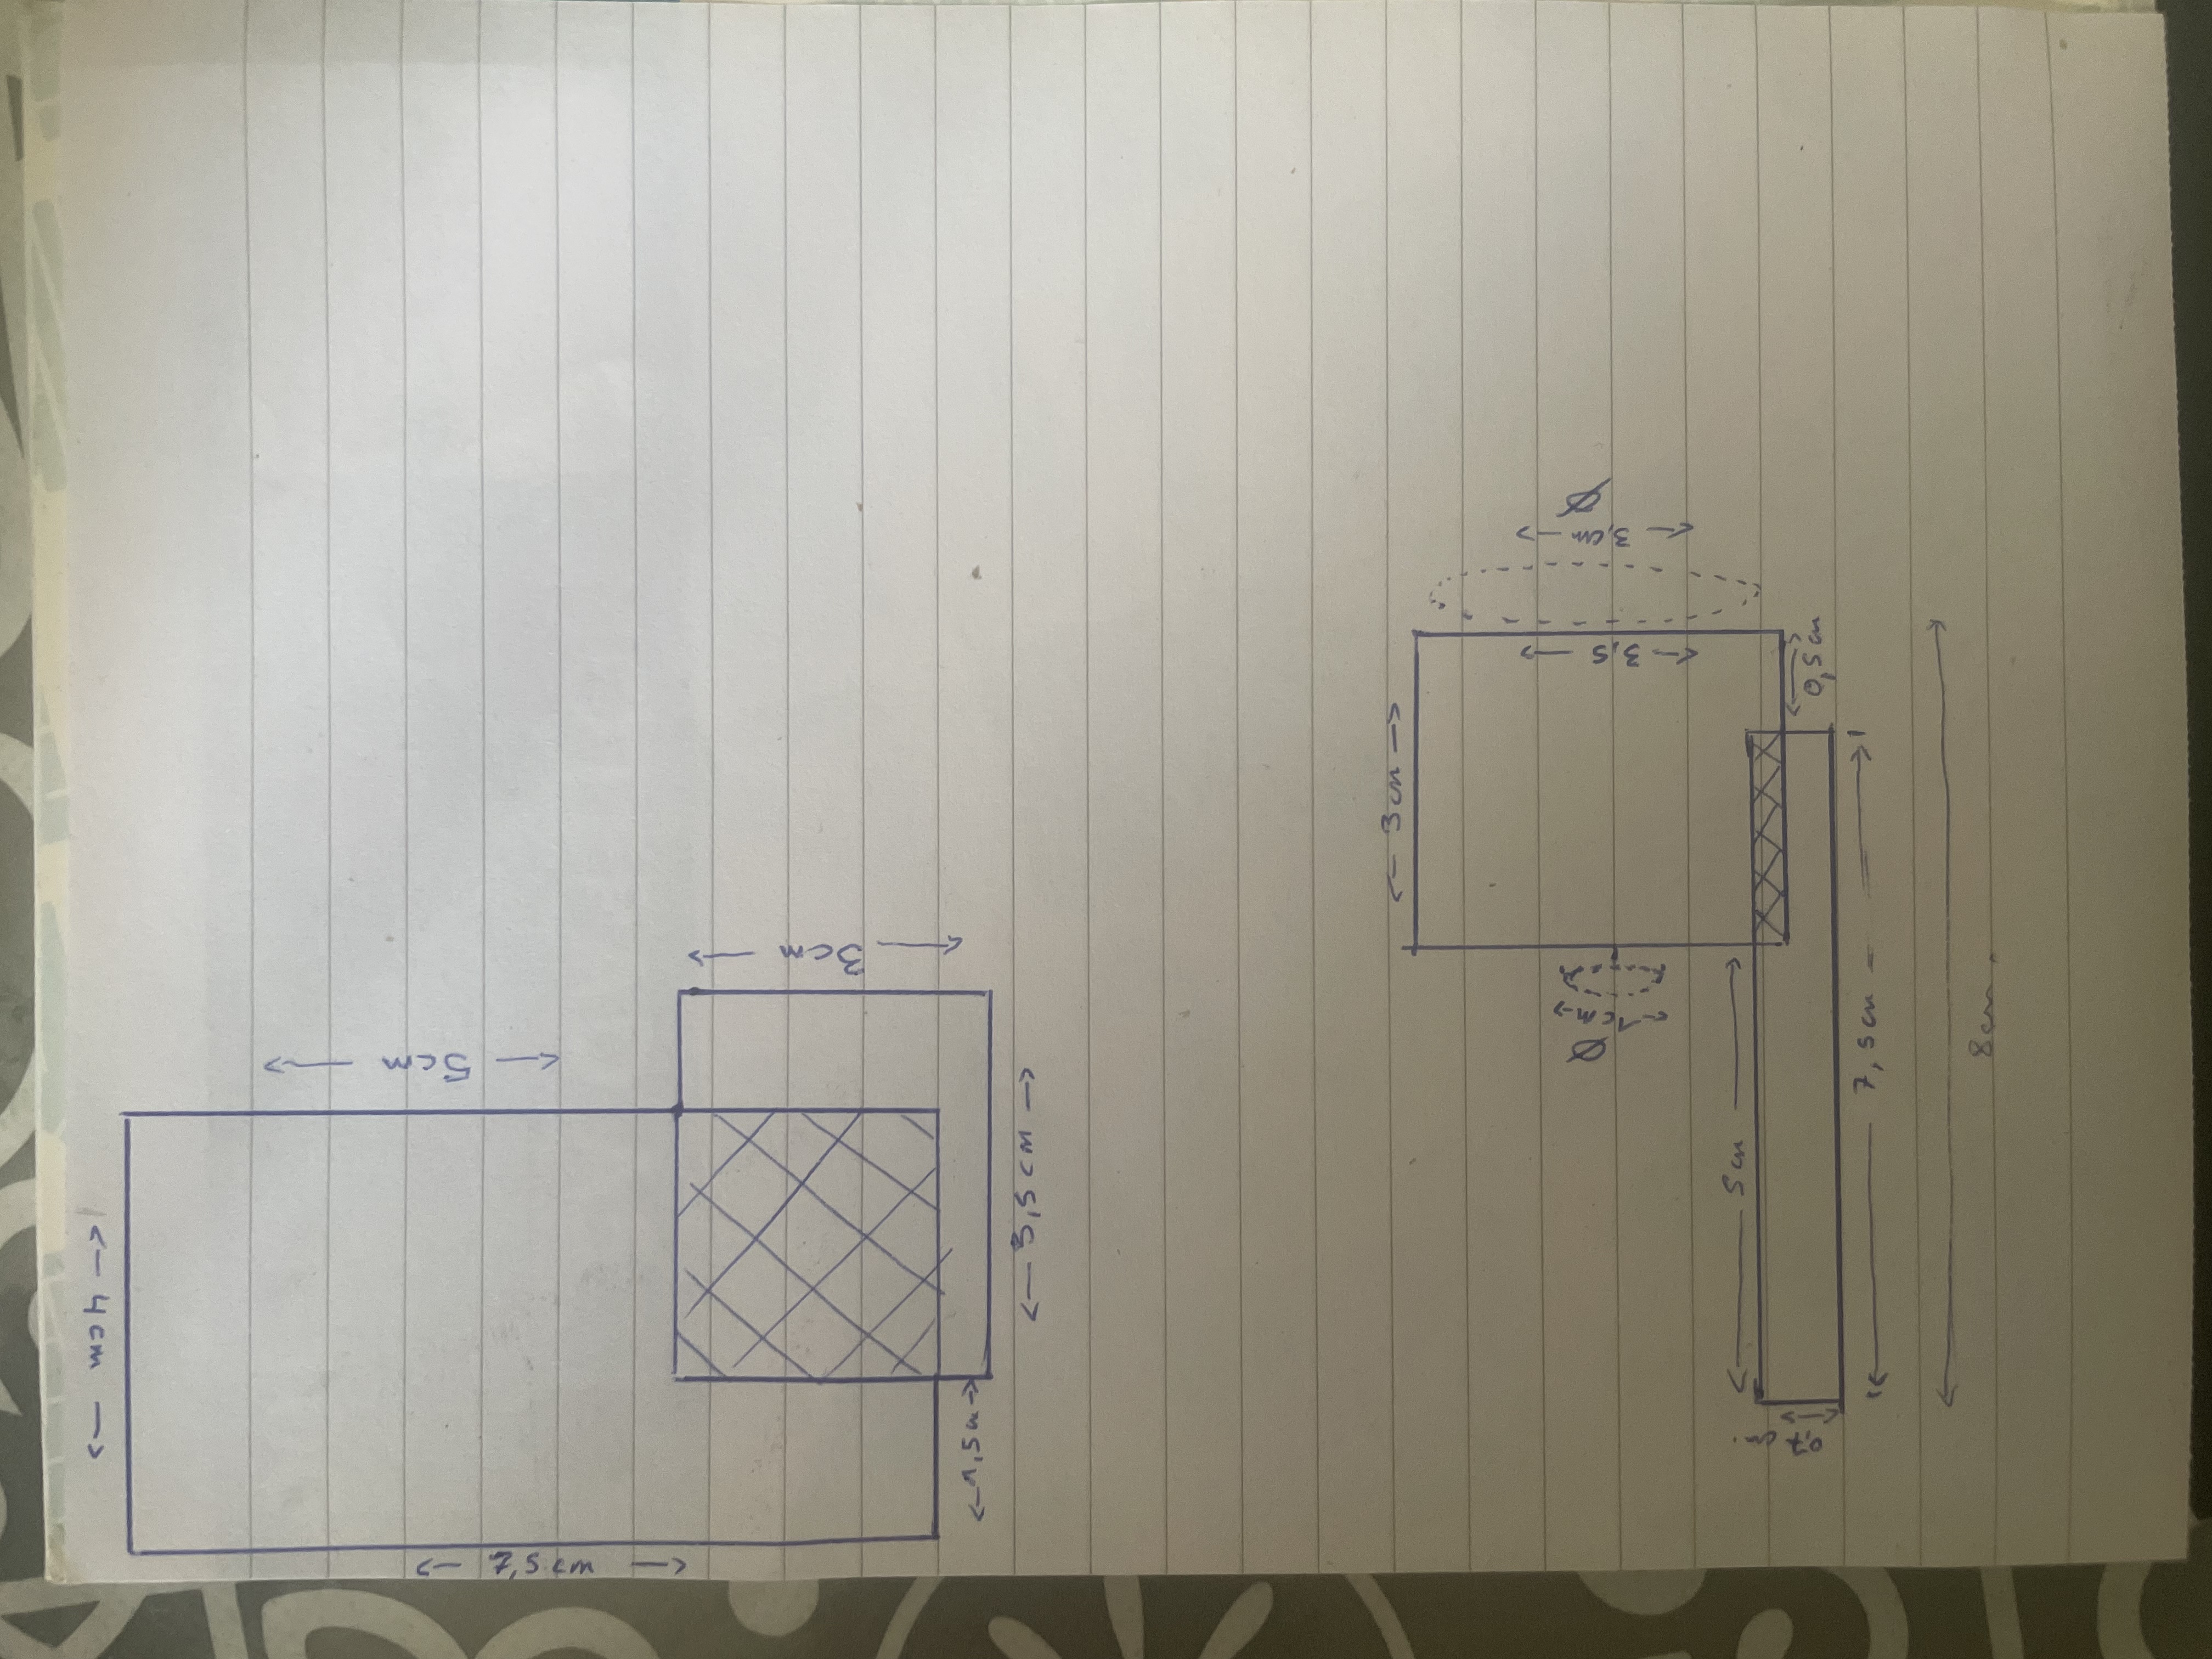 4cm
5cm
7,5cm
3cm
1,5cm
3,5cm
3cm
Ø
1cm
3,5
3,cm
Ø
5cm
0,7cm.
0,5cm
7,5cm
8cm.